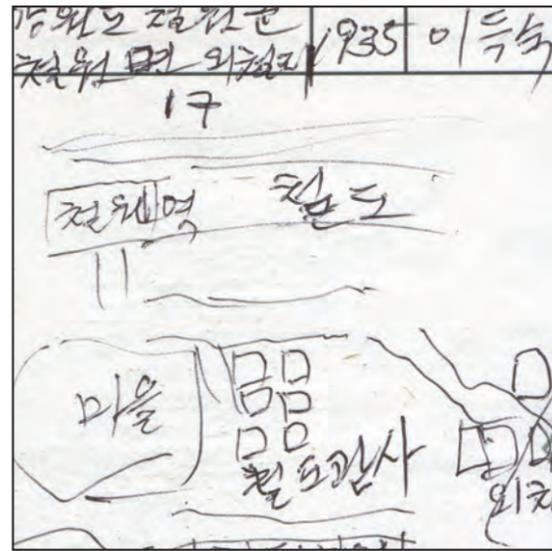 강원도 철원군
철원면 외촌리 1935 이득숙
17
철원역 철도
마을
철도관사
외촌